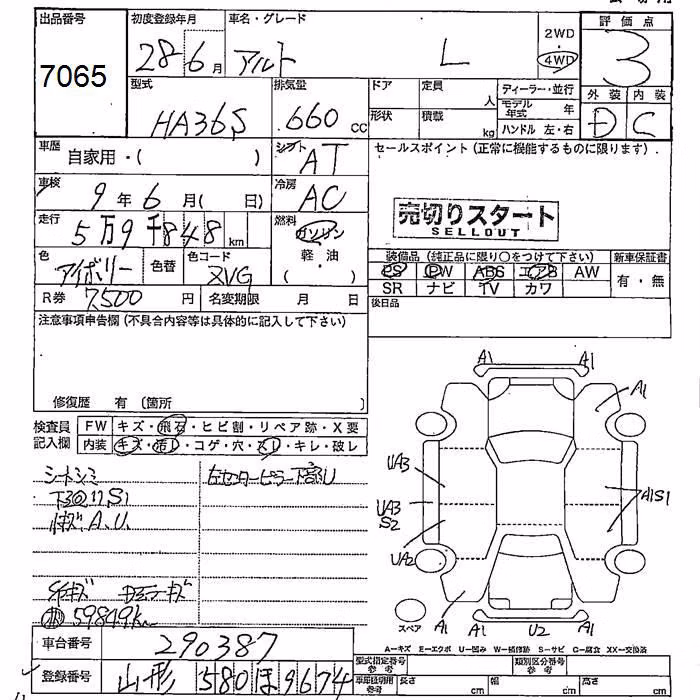 出品番号 初度登録年月 車名・グレード 2WD・4WD 評価点
7065 28年6月 アルト L 3
型式 排気量 ドア 定員 人 ディーラー・並行 外装 内装
HA36S 660cc 形状 積載 kg モデル年式 年 D C
ハンドル 左・右
車歴 自家用・( ) シフト AT セールスポイント(正常に機能するものに限ります)
車検 9年6月( 日) 冷房 AC
売切りスタート
SELLOUT
走行 5万9千848km 燃料 ガソリン 軽・油 ( )
色 アイボリー 色替 色コード ZVG
装備品(純正品に限り○をつけて下さい) 新車保証書
PS PW ABS エアB AW 有・無
R券 7,500円 名変期限 月 日 SR ナビ TV カワ
後日品
注意事項申告欄(不具合内容等は具体的に記入して下さい)
修復歴 有(箇所
検査員 FW キズ・飛石・ヒビ割・リペア跡・X要
記入欄 内装 キズ・汚レ・コゲ・穴・スレ・キレ・破レ
シートシミ 左センターピラー下部U
下回りS1
A.U.
59849km
A1 A1
A1
UA3
UA3
S2
A1S1
UA2
スペア A1 A1 U2 A1
A=キズ E=エクボ U=凹み W=補修跡 S=サビ C=腐食 XX=交換済
車台番号 290387
型式指定番号 参考 類別区分番号 参考
登録番号 山形 580 ほ 9674
車庫証明用 参考 長さ cm 幅 cm 高さ cm